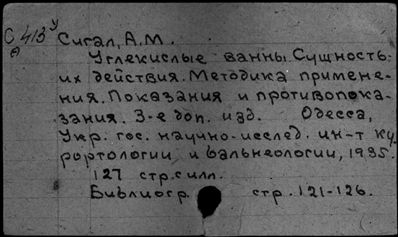 С 413 Сигал, А.М.
Углекислые ванны. Сущность
их действия. Методика примене-
ния. Показания и противопока-
зания. 3-е доп. изд. Одесса,
Укр. гос. научно-исслед. ин-т ку
рортологии и бальнеологии, 1935.
127 стр. с илл.
Библиогр. стр. 121-126.